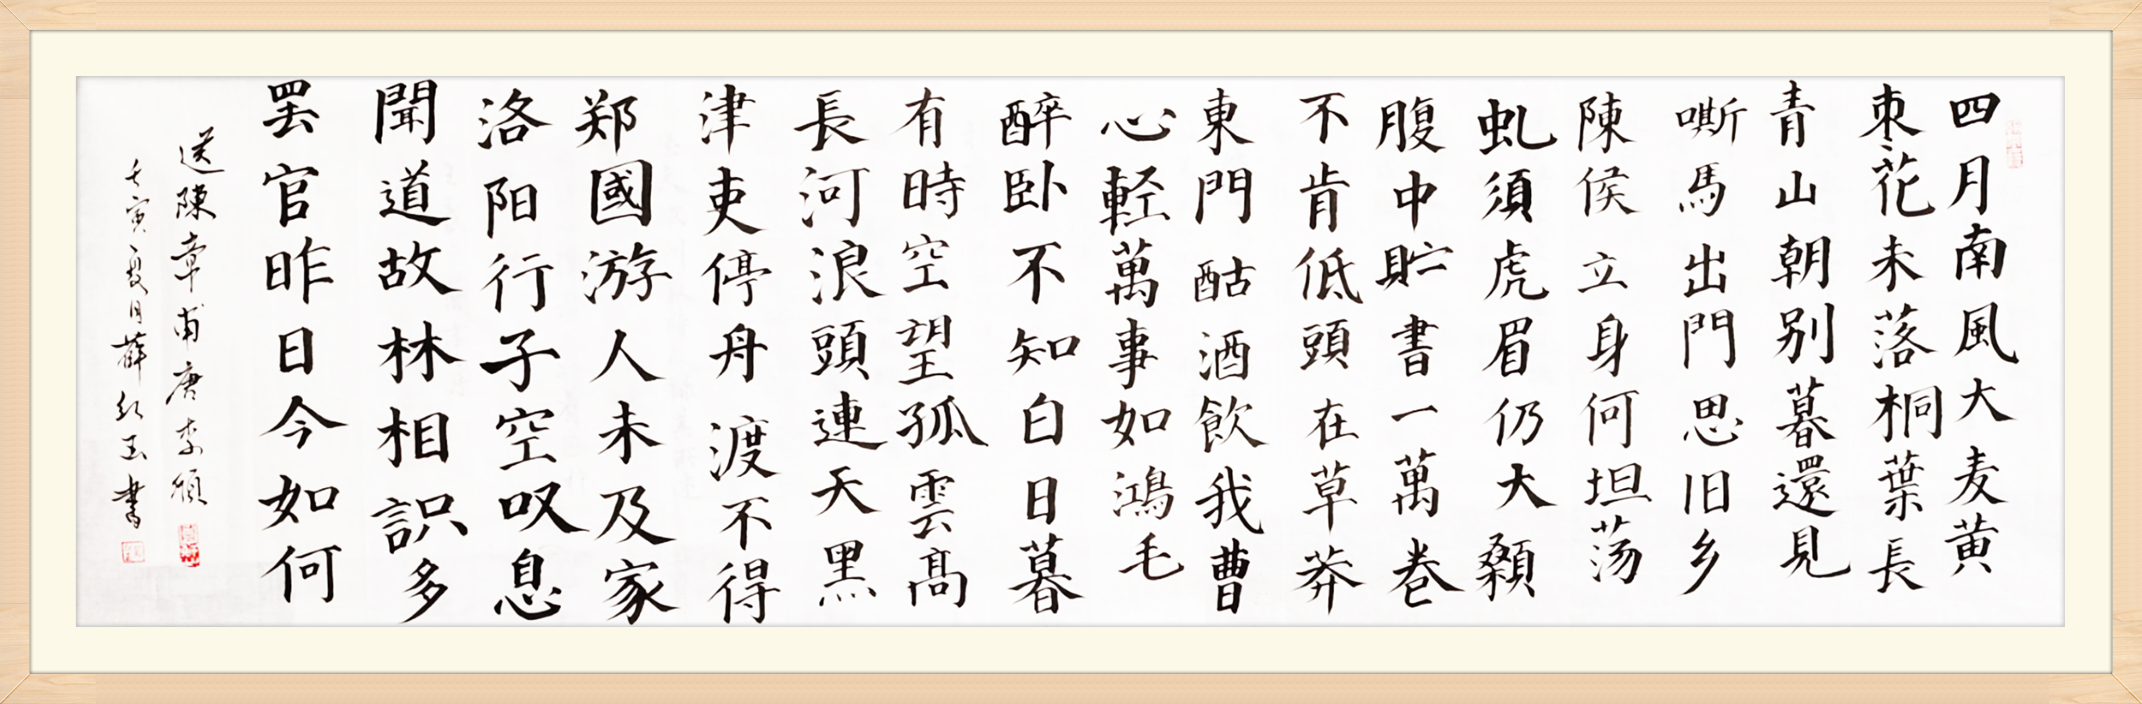 四月南風大麦黄
枣花未落桐葉長
青山朝别暮還見
嘶馬出門思旧乡
陳侯立身何坦荡
虬須虎眉仍大顙
腹中貯書一萬卷
不肯低頭在草莽
東門酤酒飲我曹
心軽萬事如鴻毛
醉卧不知白日暮
有時空望孤雲高
長河浪頭連天黑
津吏停舟渡不得
郑國游人未及家
洛阳行子空叹息
聞道故林相識多
罢官昨日今如何
送陳章甫 唐 李颀
壬寅夏月薛红玉書